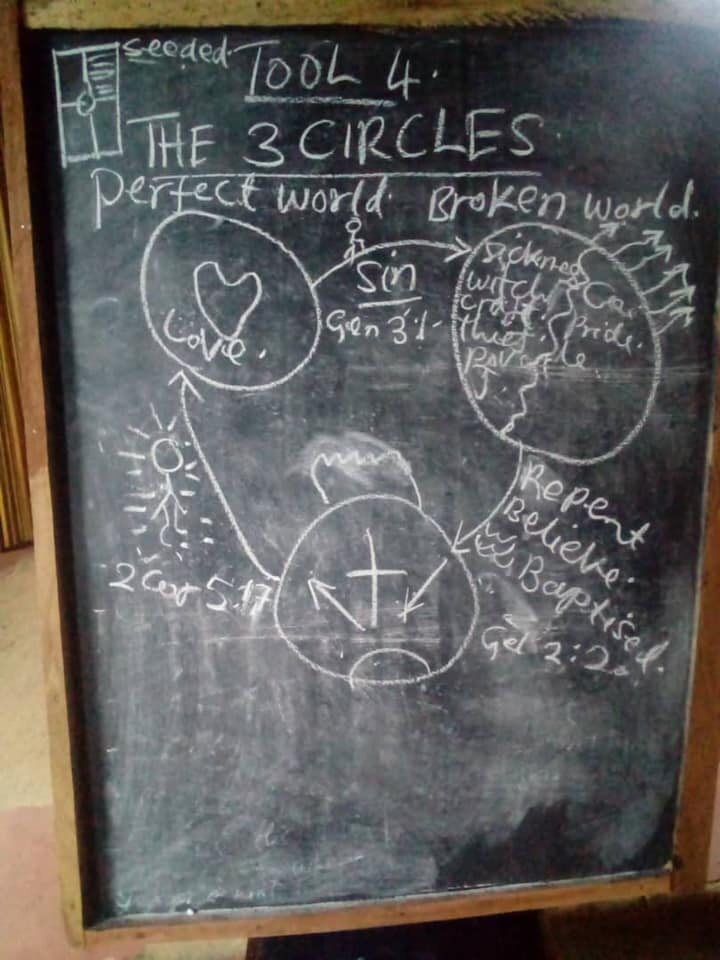 seeded.
TOOL 4.
THE 3 CIRCLES.
Perfect world. Broken world.
Love.
Sin
Gen 3:1-
Sickness
witch
craft.
thief.
Pride.
Repent
Believe.
Baptised.
Gal 2:20.
2 Cor 5:17